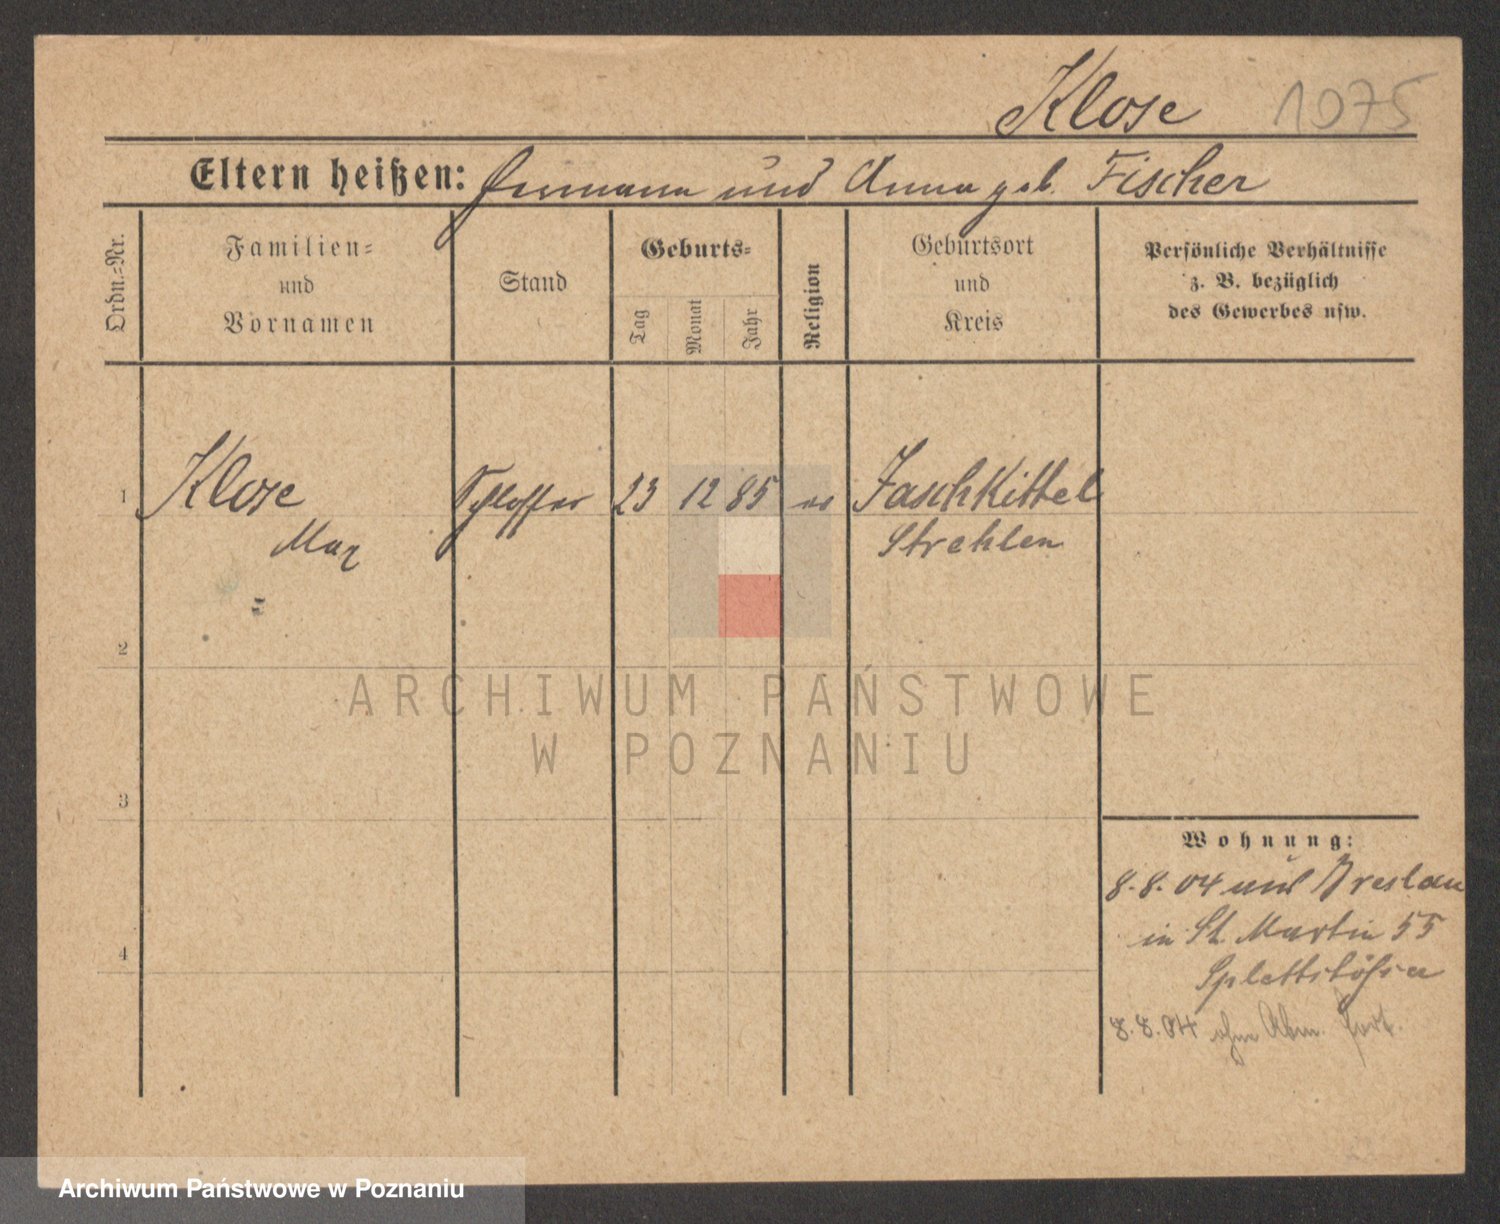 Klose 1075
Eltern heißen: Hermann und Anna geb. Fischer
Ordn.=Nr.
Familien=
und
Vornamen
Stand
Geburts=
Tag
Monat
Jahr
Religion
Geburtsort
und
Kreis
Persönliche Verhältnisse
z. B. bezüglich
des Gewerbes usw.
1 Klose Schlosser 23 12 85 ev Jaschkittel
Max Strehlen
2
ARCHIWUM PAŃSTWOWE
W POZNANIU
3
Wohnung:
8.8.04 aus Breslau
4 in St. Martin 55
Splettstößer
8.8.04 ohne Abm. fort.
Archiwum Państwowe w Poznaniu